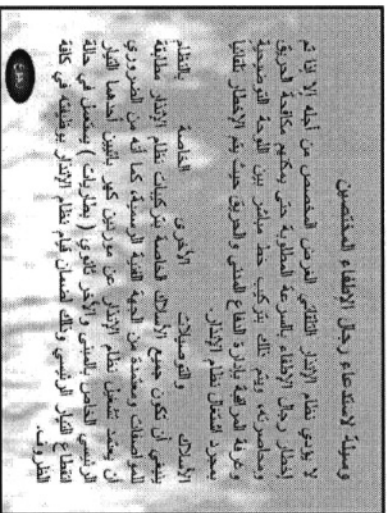 وسيلة لاستدعاء رجال الإطفاء المختصين
لا يؤدي نظام الإنذار التلقائي الغرض المخصص من أجله إلا إذا تم
إخطار رجال الإطفاء بالسرعة المطلوبة حتى يمكنهم مكافحة الحريق
ومحاصرته، ويتم ذلك بتركيب خط مباشر بين اللوحة التوضيحية
وغرفة المراقبة بإدارة الدفاع المدني والحريق حيث يتم الإخطار تلقائياً
بمجرد اشتغال نظام الإنذار.
الأسلاك والتوصيلات الأخرى الخاصة بالنظام
ينبغي أن تكون جميع الأسلاك الخاصة بتركيبات نظام الإنذار مطابقة
للمواصفات ومعتمدة من الجهة الفنية الرسمية، كما أنه من الضروري
أن يعتمد تشغيل نظام الإنذار عن موردين كهربائيين أحدهما التيار
الرئيسي الخاص بالمبنى والآخر ثانوي ( بطاريات ) يستعمل في حالة
انقطاع التيار الرئيسي وذلك لضمان قيام نظام الإنذار بوظيفته في كافة
الظروف.
رجوع